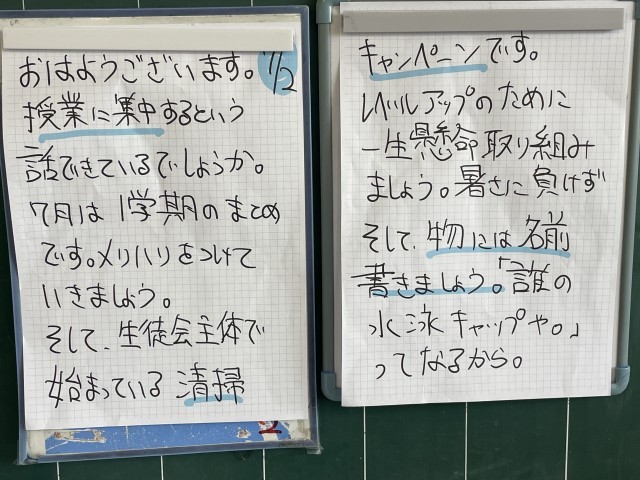 おはようございます。 7/2
授業に集中するという
話できているでしょうか。
7月は1学期のまとめ
です。メリハリをつけて
いきましょう。
そして、生徒会主体で
始まっている清掃
キャンペーンです。
レベルアップのために
一生懸命取り組み
ましょう。暑さに負けず
そして、物には名前
書きましょう。「誰の
水泳キャップや。」
ってなるから。